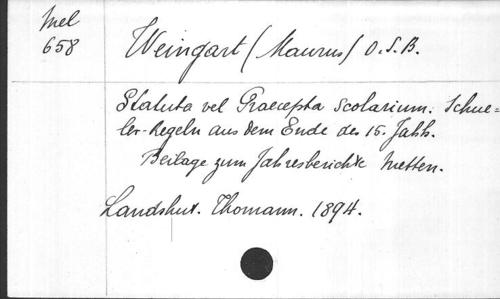 Mel
658
Weingart (Maurus) O.S.B.
Statuta vel Praecepta Scolarium. Schue=
ler-Regeln aus dem Ende des 15. Jahh.
Beilage zum Jahresberichte Metten.
Landshut. Thomann. 1894.